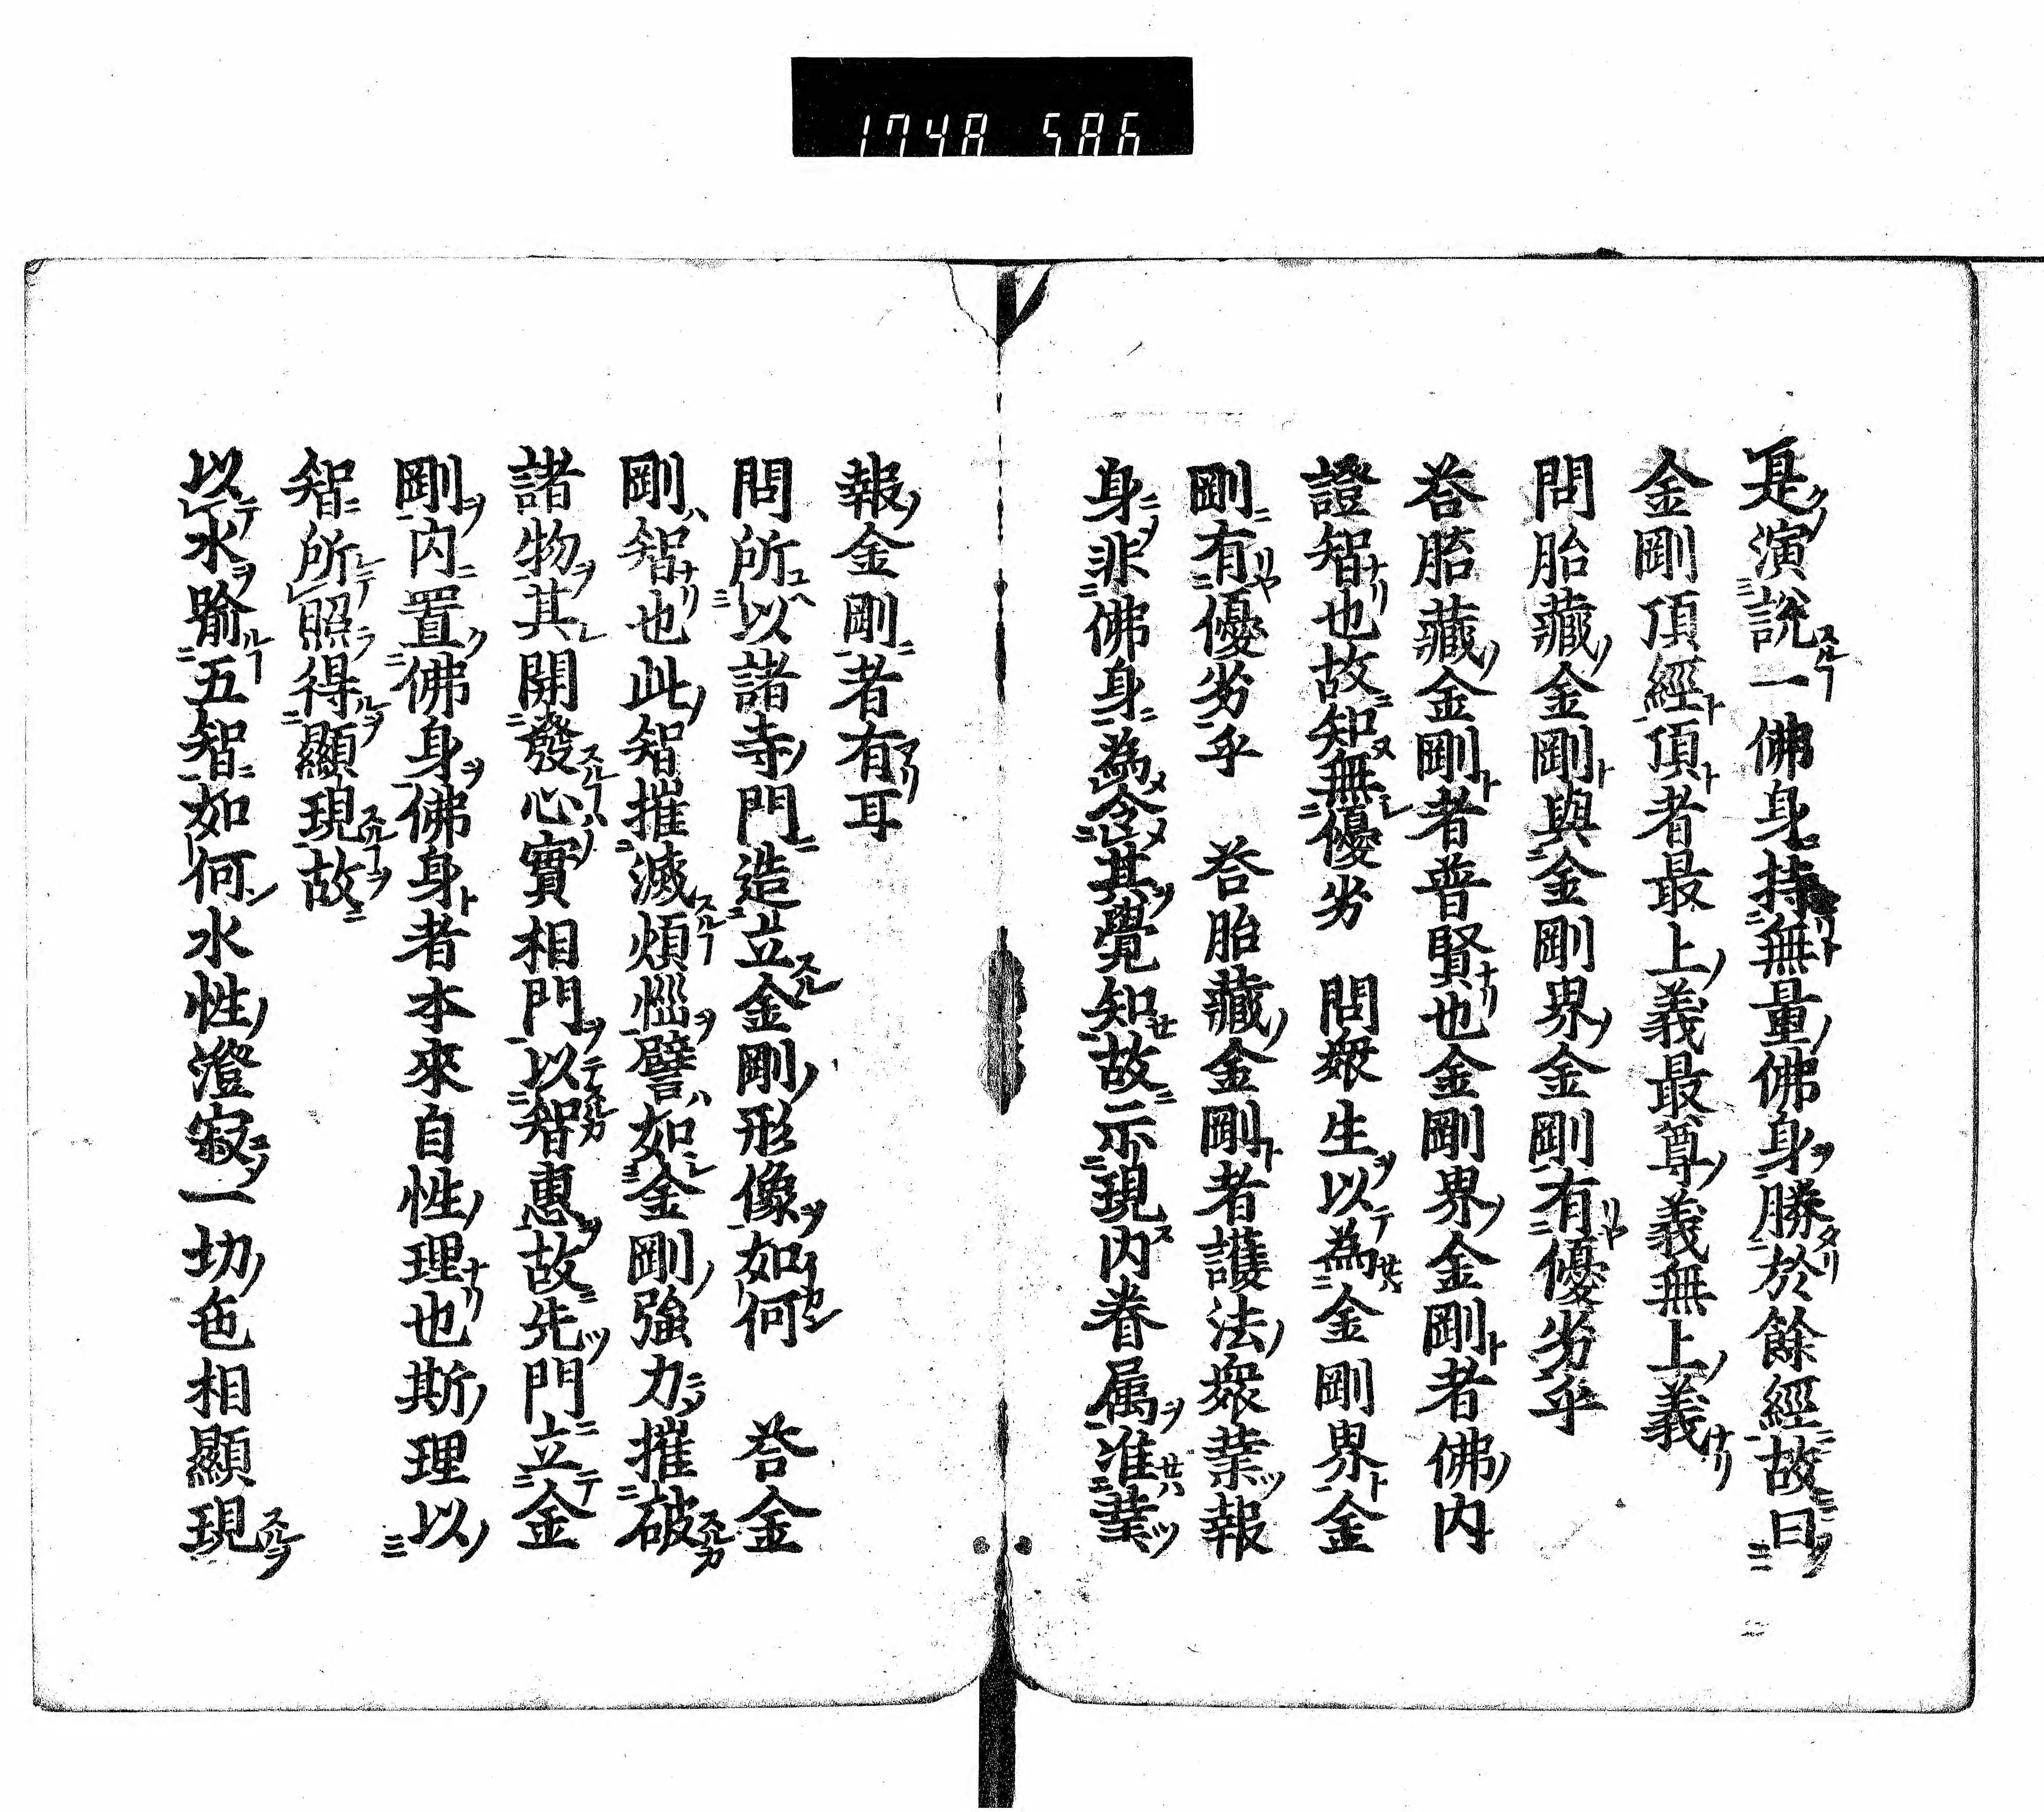 1748 586
是演說一佛身持無量佛身勝於餘經故曰
金剛頂經頂者最上義最尊義無上義
問胎藏金剛與金剛界金剛有優劣乎
荅胎藏金剛者普賢也金剛界金剛者佛内
證智也故知無優劣　問衆生以為金剛界金
剛有優劣乎　荅胎藏金剛者護法衆業報
身非佛身為令其覺知故示現内眷属准業
報金剛者有耳
問所以諸寺門造立金剛形像如何　荅金
剛智也此智摧滅煩惱譬如金剛強力摧破
諸物其開發心實相門以智惠故先門立金
剛内置佛身佛身者本來自性理也斯理以
智所照得顯現故
以水喻五智如何水性澄寂一切色相顯現